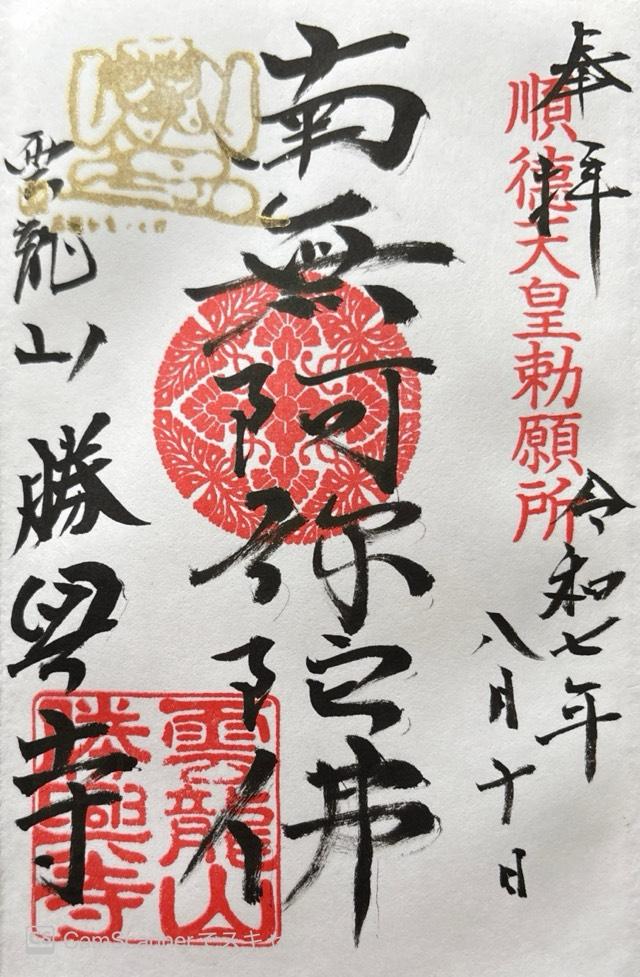 奉拝
順徳天皇勅願所
令和七年
八月十日
南無阿弥陀佛
雲龍山
勝興寺
雲龍山
勝興寺
CamScannerでスキャ